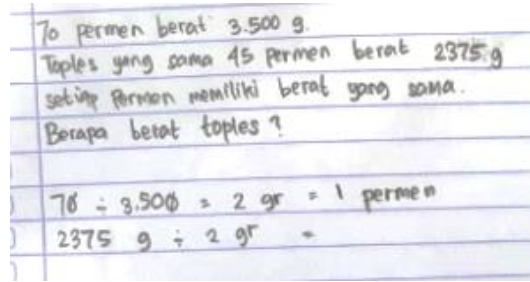 70 permen berat 3.500 g.
Toples yang sama 45 permen berat 2375 g
setiap Permen memiliki berat yang sama.
Berapa berat toples?
70 ÷ 3.500 = 2 gr = 1 permen
2375 g ÷ 2 gr =